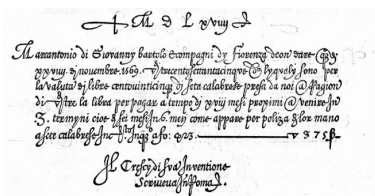 M D L xviiij
Marcantonio di Giovanny bartolo & compagni dy Fiorenza deon dare
xxviiij di novembre. 1569. trecentosettantacinque lyqualy sono per
la valuta di libre centovinticinque di seta calabrese presa da noi a Ragion
di tre la libra per pagar a tempo di xviij mesi proximi a venire In
3. termyni cioe di sei mesi In 6. mesi come appare per poliza di lor mano
a sete calabrese In q.o a fo. 23. 375
Il Crescy di sua Inventione
Scriveva In Roma